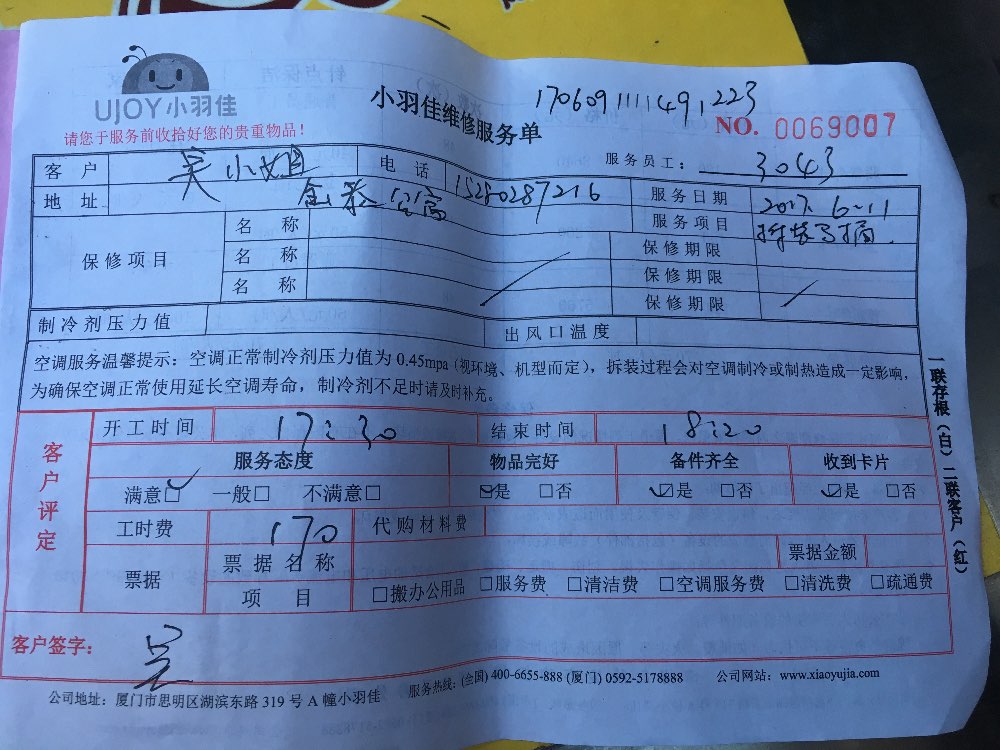 UJOY小羽佳
小羽佳维修服务单
170609111149,223
请您于服务前收拾好您的贵重物品！
NO. 0069007
服务员工： 3043
客户 吴小姐 电话 15280287216
地址 服务日期 2017.6-11
保修项目 名称 服务项目
名称 保修期限
名称 保修期限
保修期限
制冷剂压力值 出风口温度
空调服务温馨提示：空调正常制冷剂压力值为 0.45mpa（视环境、机型而定），拆装过程会对空调制冷或制热造成一定影响，
为确保空调正常使用延长空调寿命，制冷剂不足时请及时补充。
一联存根（白）二联客户（红）
客户评定
开工时间 17:30 结束时间 18:20
服务态度 物品完好 备件齐全 收到卡片
满意□ 一般□ 不满意□ □是 □否 □是 □否 □是 □否
工时费 170 代购材料费
票据 票据名称 票据金额
项目 □搬办公用品 □服务费 □清洁费 □空调服务费 □清洗费 □疏通费
客户签字： 吴
公司地址：厦门市思明区湖滨东路 319 号 A 幢小羽佳 服务热线：(全国) 400-6655-888 (厦门) 0592-5178888 公司网站：www.xiaoyujia.com